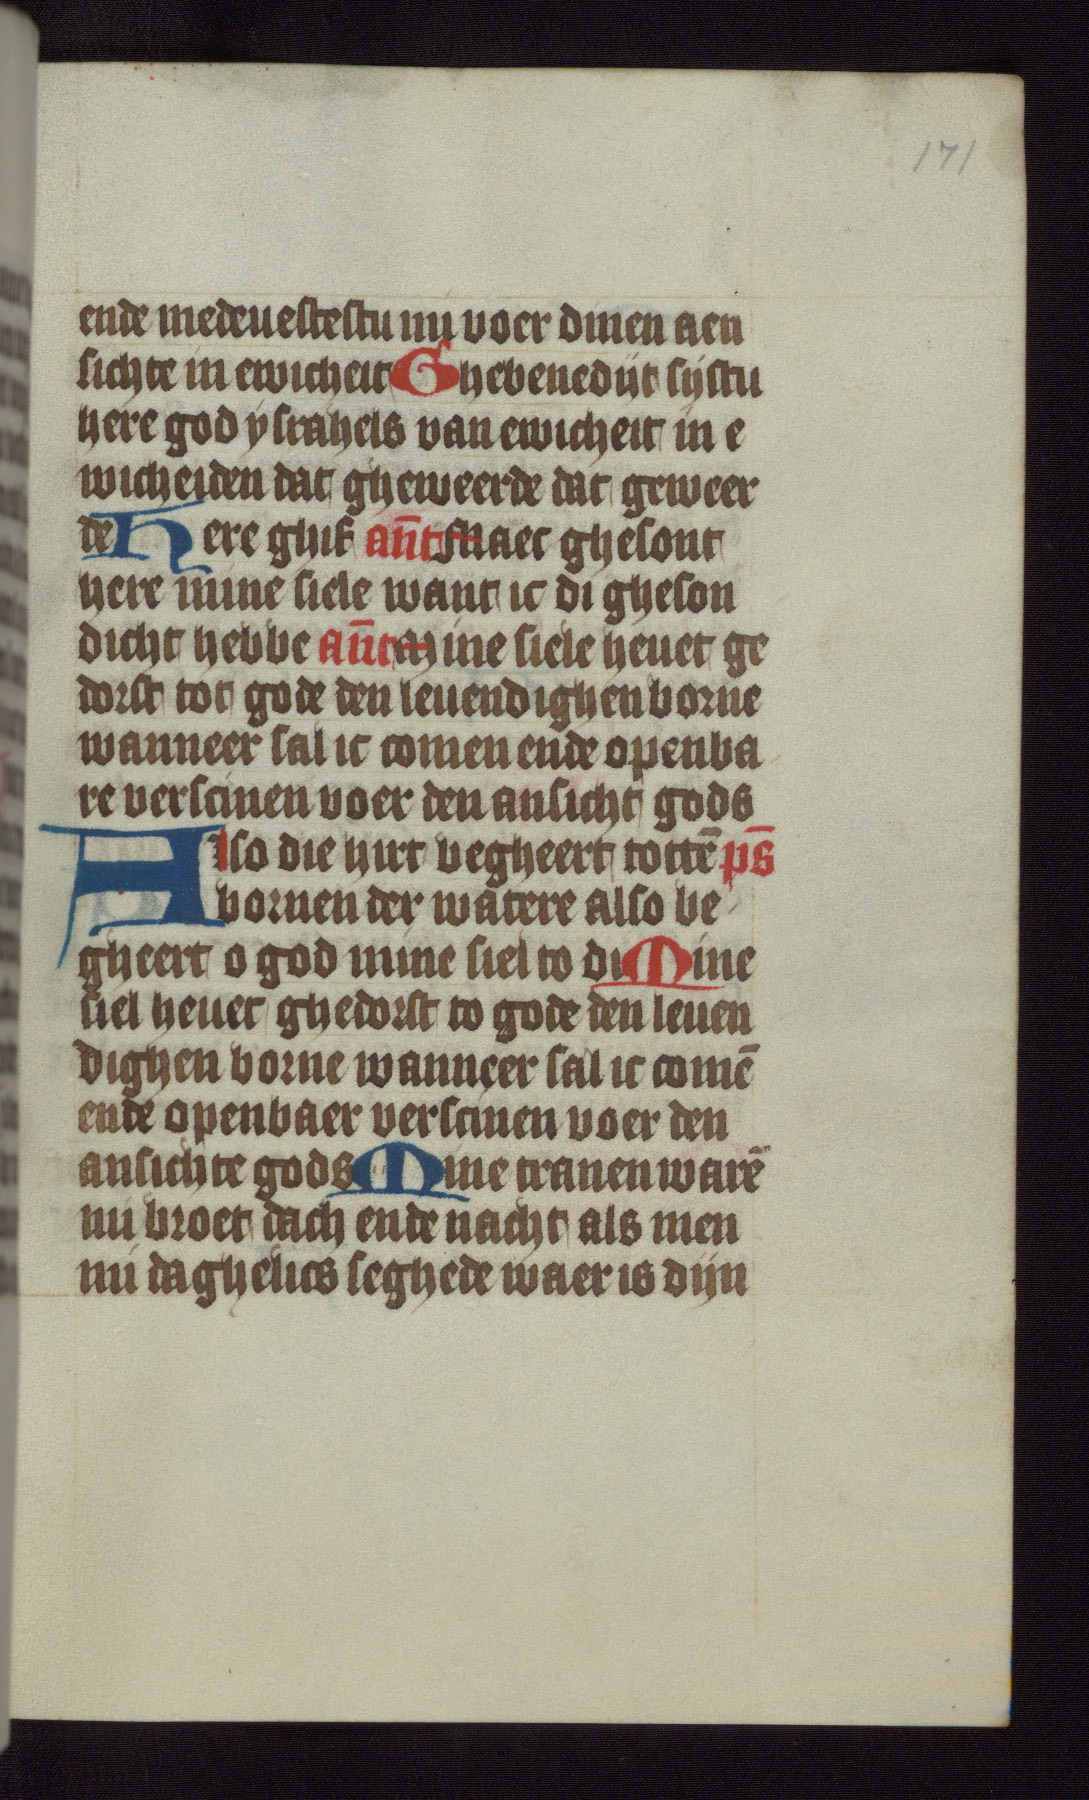 171
ende medeuestestu mi voer dinen aen
sichte in ewicheit Ghebenedijt sijstu
here god ysrahels van ewicheit in e
wicheiden dat gheweerde dat geweer
de Here ghif an̄t Maec ghesont
here mine siele want ic di gheson
dicht hebbe an̄t Mine siele heuet ge
dorst tot gode den leuendighen borne
wanneer sal ic comen ende openba
re verscinen voer den ansicht gods
Also die hirt begheert tottē ps̄
bornen der watere also be
gheert o god mine siel to di Mine
siel heuet ghedorst to gode den leuen
dighen borne wanneer sal ic comē
ende openbaer verscinen voer den
ansichte gods Mine tranen warē
mi broet dach ende nacht als men
mi daghelics seghede waer is dijn